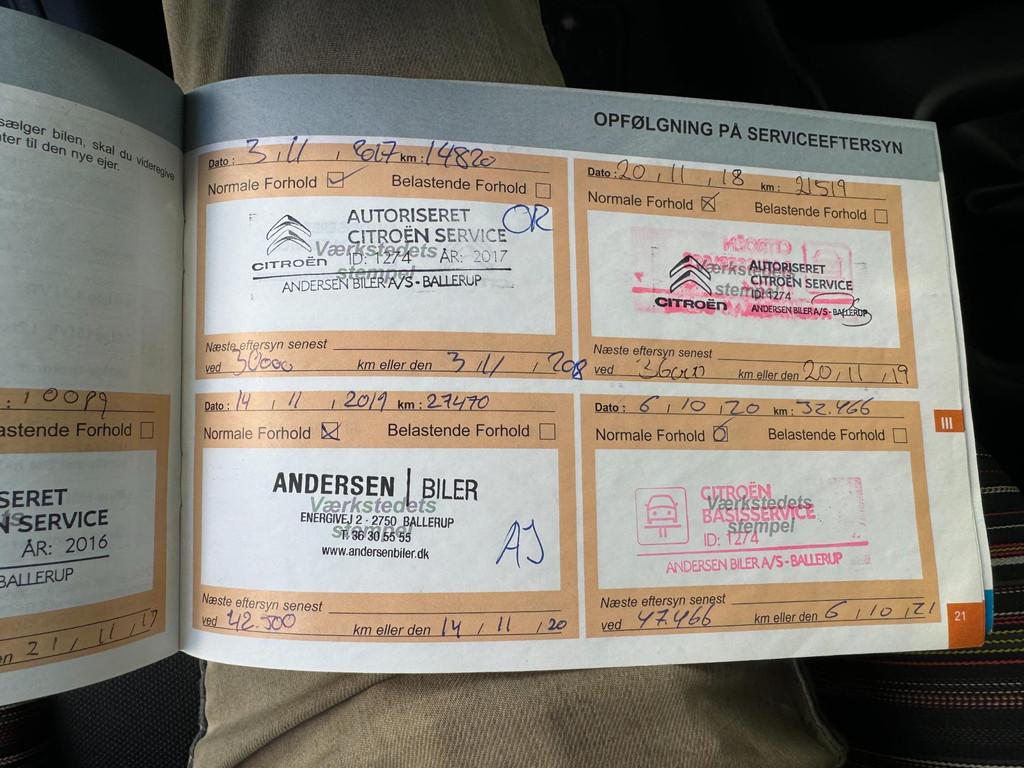 sælger bilen, skal du videregive
nter til den nye ejer.
: 10089
astende Forhold
SERET
N SERVICE
ÅR: 2016
BALLERUP
en 21 / 11 / 17
OPFØLGNING PÅ SERVICEEFTERSYN
Dato : 3 / 11 / 2017 km : 14820
Normale Forhold Belastende Forhold
AUTORISERET
CITROËN SERVICE
ID: 1274 ÅR: 2017
CITROËN
ANDERSEN BILER A/S - BALLERUP
OR
Værkstedets
stempel
Næste eftersyn senest
ved 30000 km eller den 3 / 11 / 2018
Dato : 20 / 11 / 18 km : 21519
Normale Forhold Belastende Forhold
Værkstedets
stempel
AUTORISERET
CITROËN SERVICE
ID: 1274
CITROËN
ANDERSEN BILER A/S - BALLERUP
Næste eftersyn senest
ved 36000 km eller den 20 / 11 / 19
Dato : 14 / 11 / 2019 km : 27470
Normale Forhold Belastende Forhold
ANDERSEN | BILER
Værkstedets
stempel
ENERGIVEJ 2 · 2750 BALLERUP
Tlf. 36 30 55 55
www.andersenbiler.dk
AJ
Næste eftersyn senest
ved 42.500 km eller den 14 / 11 / 20
Dato : 6 / 10 / 20 km : 32.466
Normale Forhold Belastende Forhold
CITROËN
BASISSERVICE
Værkstedets
stempel
ID: 1274
ANDERSEN BILER A/S - BALLERUP
Næste eftersyn senest
ved 47.466 km eller den 6 / 10 / 21
III
21